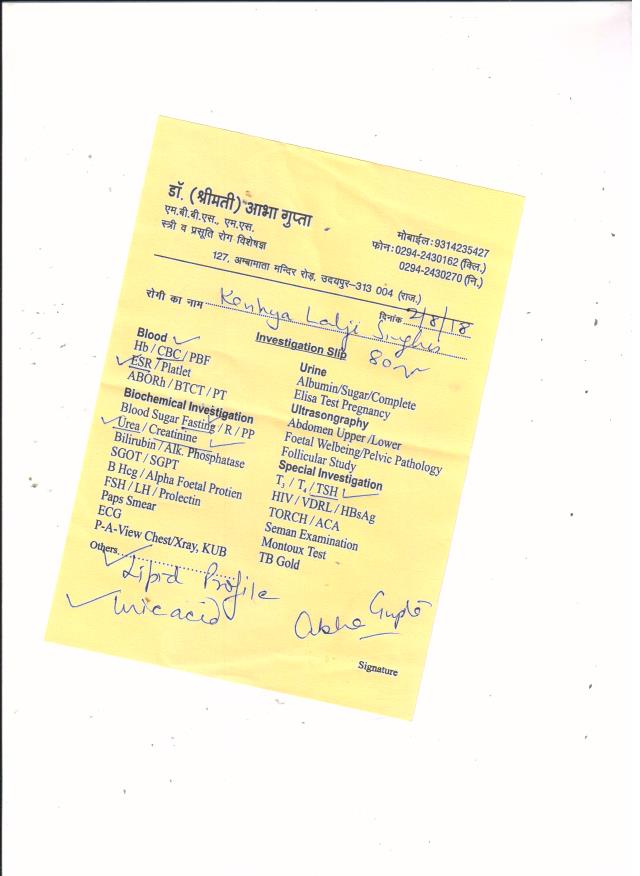 डॉ. (श्रीमती) आभा गुप्ता
एम.बी.बी.एस., एम.एस.
स्त्री व प्रसूति रोग विशेषज्ञ
मोबाईल:9314235427
फोन:0294-2430162 (क्लि.)
0294-2430270 (नि.)
127, अम्बामाता मन्दिर रोड़, उदयपुर–313 004 (राज.)
रोगी का नाम Kanhya Lalji Singhvi दिनांक 2/8/18
Investigation Slip
80
Blood
Hb / CBC / PBF
ESR / Platlet
ABORh / BTCT / PT
Biochemical Investigation
Blood Sugar Fasting / R / PP
Urea / Creatinine
Bilirubin / Alk. Phosphatase
SGOT / SGPT
B Hcg / Alpha Foetal Protien
FSH / LH / Prolectin
Paps Smear
ECG
P-A-View Chest/Xray, KUB
Others
Urine
Albumin/Sugar/Complete
Elisa Test Pregnancy
Ultrasongraphy
Abdomen Upper /Lower
Foetal Welbeing/Pelvic Pathology
Follicular Study
Special Investigation
T3 / T4 / TSH
HIV / VDRL / HBsAg
TORCH / ACA
Seman Examination
Montoux Test
TB Gold
Lipid Profile
Uric acid
Abha Gupta
Signature